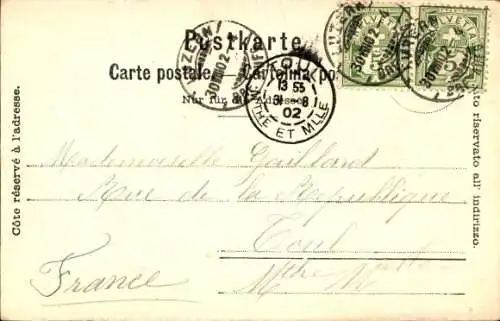 Postkarte
Carte postale. Cartolina po
Nur für die Adresse
Côte réservé à l'adresse.
Lato riservato all' indirizzo.
HELVETIA
HELVETIA
5
LUZERN
30 VIII 02
TOUL
13 55
31 8
02
MTHE ET MLLE
Mademoiselle Gaillard
Rue de la République
Toul
Mthe
France